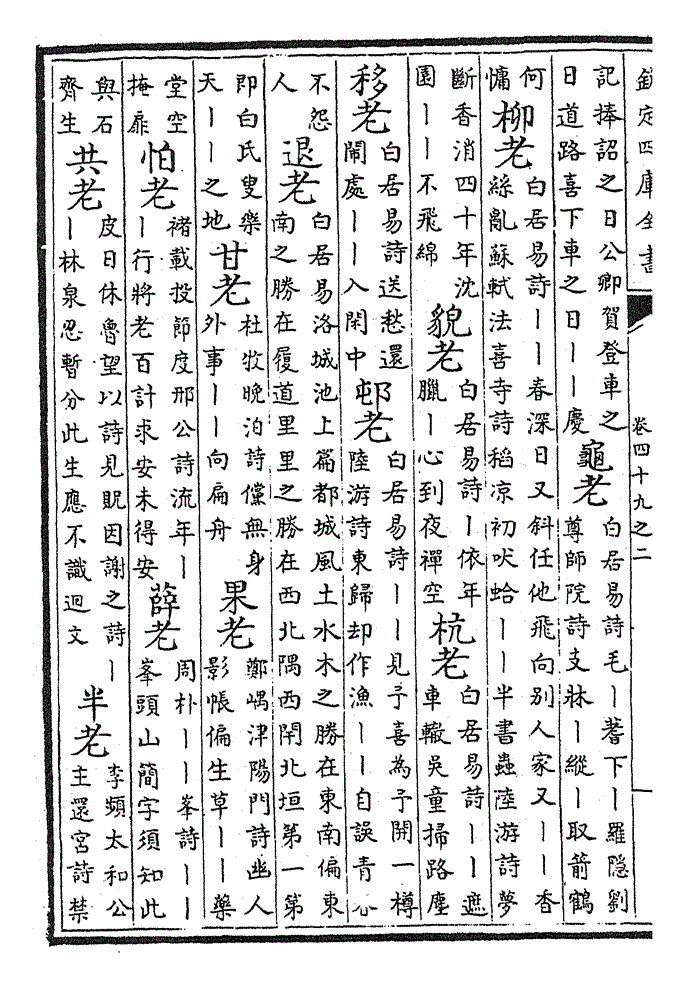 欽定四庫全書 卷四十九之二 一
記捧詔之日公卿賀登車之
日道路喜下車之日丨丨慶
龜老
白居易詩毛丨蓍下丨羅隱劉
尊師院詩支牀丨縱丨取箭鶴
何
慵
柳老
白居易詩丨丨春深日又斜任他飛向別人家又丨丨香
絲亂蘇軾法喜寺詩稻凉初吠蛤丨丨半書蟲陸游詩夢
斷香消四十年沈
園丨丨不飛綿
貌老
白居易詩丨依年
臘丨心到夜禪空
杭老
白居易詩丨丨遮
車轍吳童掃路塵
移老
白居易詩送愁還
鬧處丨丨入閑中
邨老
白居易詩丨丨見予喜為予開一樽
陸游詩東歸却作漁丨丨自誤青
不怨
人
退老
白居易洛城池上篇都城風土水木之勝在東南偏東
南之勝在履道里里之勝在西北隅西閈北垣第一第
即白氏叟樂
天丨丨之地
甘老
杜牧晚泊詩儻無身
外事丨丨向扁舟
果老
鄭嵎津陽門詩幽人
影帳偏生草丨丨藥
堂空
掩扉
怕老
褚載投節度邢公詩流年丨
丨行將老百計求安未得安
薛老
周朴丨丨峯詩丨丨
峯頭山簡字須知此
與石
齊生
共老
皮日休魯望以詩見貺因謝之詩丨
丨林泉忍暫分此生應不識迴文
半老
李頻太和公
主還宮詩禁